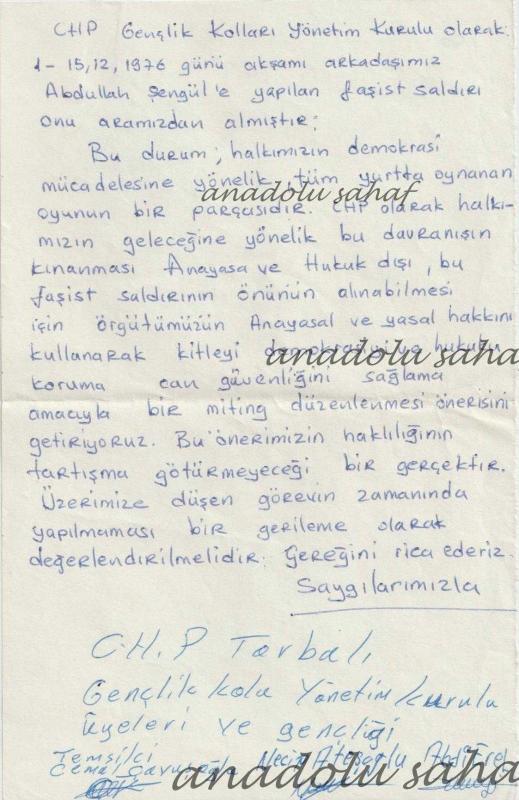 CHP Gençlik Kolları Yönetim Kurulu olarak:
1- 15,12,1976 günü akşamı arkadaşımız
Abdullah Şengül'e yapılan faşist saldırı
onu aramızdan almıştır;
Bu durum; halkımızın demokrasi
mücadelesine yönelik, tüm yurtta oynanan
anadolu sahaf
oyunun bir parçasıdır. CHP olarak halkı-
mızın geleceğine yönelik bu davranışın
kınanması Anayasa ve Hukuk dışı, bu
faşist saldırının önünün alınabilmesi
için örgütümüzün Anayasal ve yasal hakkını
kullanarak kitleyi ve hukuku
anadolu sahaf
koruma can güvenliğini sağlama
amacıyla bir miting düzenlenmesi önerisini
getiriyoruz. Bu önerimizin haklılığının
tartışma götürmeyeceği bir gerçektir.
Üzerimize düşen görevin zamanında
yapılmaması bir gerileme olarak
değerlendirilmelidir. Gereğini rica ederiz.
Saygılarımızla
C.H.P Torbalı
Gençlik kolu Yönetim kurulu
üyeleri ve gençliği
Temsilci
anadolu sahaf